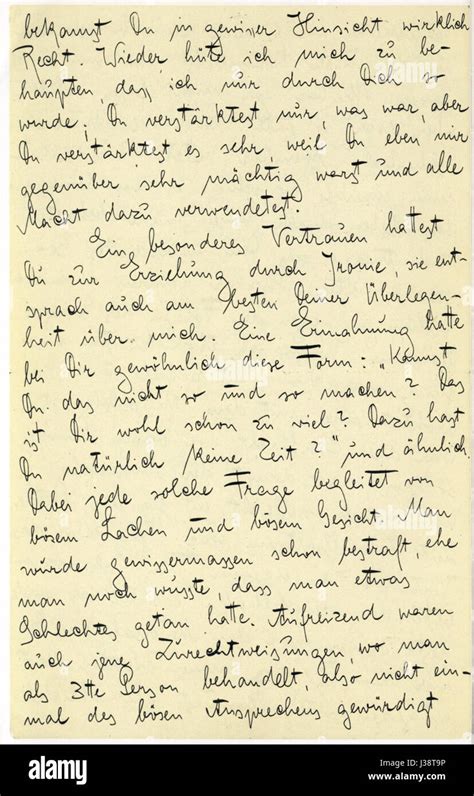 bekamst Du in gewisser Hinsicht wirklich
Recht. Wieder hüte ich mich zu be-
haupten, dass ich nur durch Dich so
wurde, Du verstärktest nur, was war, aber
Du verstärktest es sehr, weil Du eben mir
gegenüber sehr mächtig warst und alle
Macht dazu verwendetest.
Ein besonderes Vertrauen hattest
Du zur Erziehung durch Ironie, sie ent-
sprach auch am besten Deiner Überlegen-
heit über mich. Eine Ermahnung hatte
bei Dir gewöhnlich diese Form: „Kannst
Du das nicht so und so machen? Das
ist Dir wohl schon zu viel? Dazu hast
Du natürlich keine Zeit?" und ähnlich.
Dabei jede solche Frage begleitet von
bösem Lachen und bösem Gesicht. Man
wurde gewissermassen schon bestraft, ehe
man noch wusste, dass man etwas
Schlechtes getan hatte. Aufreizend waren
auch jene Zurechtweisungen, wo man
als 3tte Person behandelt, also nicht ein-
mal des bösen Ansprechens gewürdigt
alamy
Image ID: J38T9P
www.alamy.com